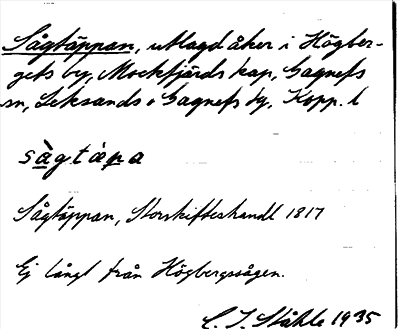 Sågtäppan, utlagd åker i Högber-
gets by, Mockfjärds kap, Gagnefs
sn, Leksands o Gagnefs tg, Kopp. l
sàgtápa
Sågtäppan, Storskifteshandl 1817
Ej långt från Högbergssågen.
C. I. Ståhle 1935